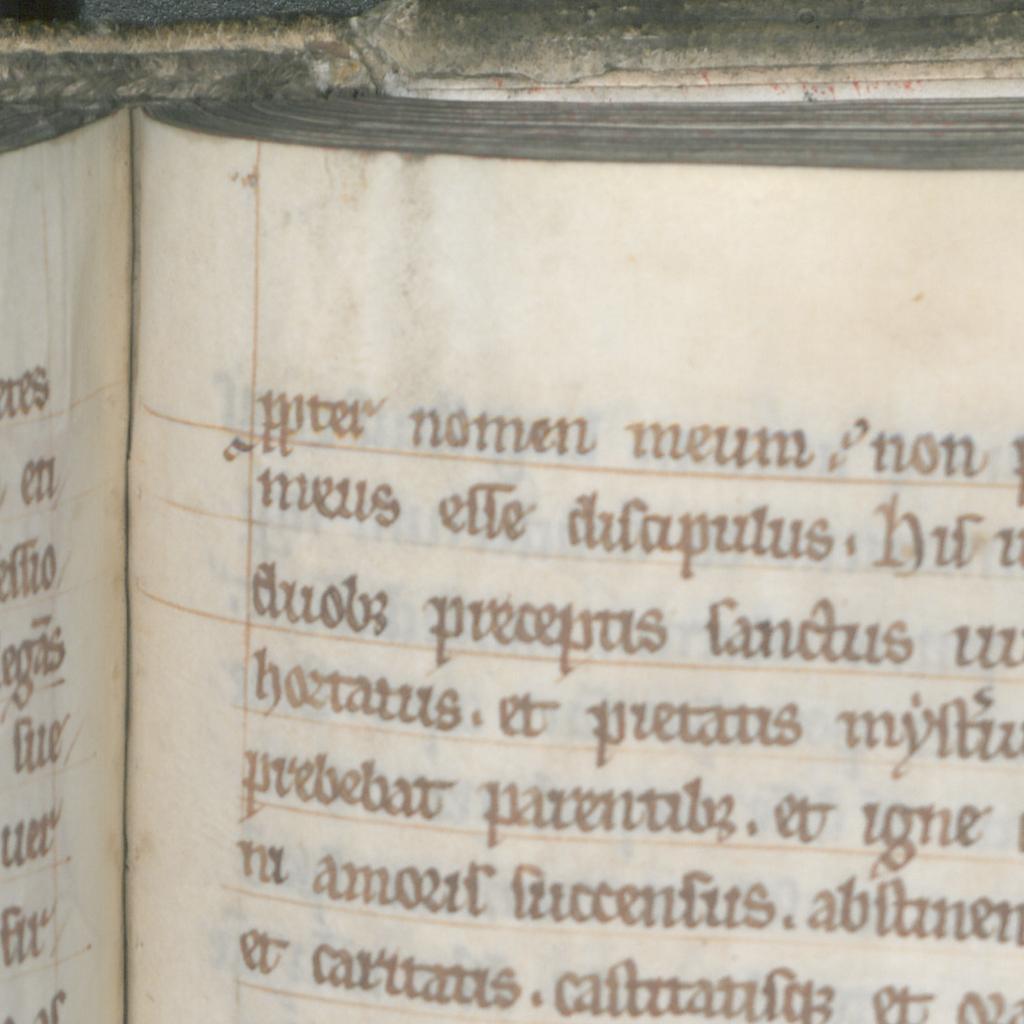 etes
en
essio
legās
sue
uer
sur
ppter nomen meum, non
meus esse discipulus. His
duobꝫ preceptis sanctus
hortatus. et pietatis
prebebat parentibꝫ. et igne
ni amoris succensus. abstinen
et caritatis. castitatisqꝫ et